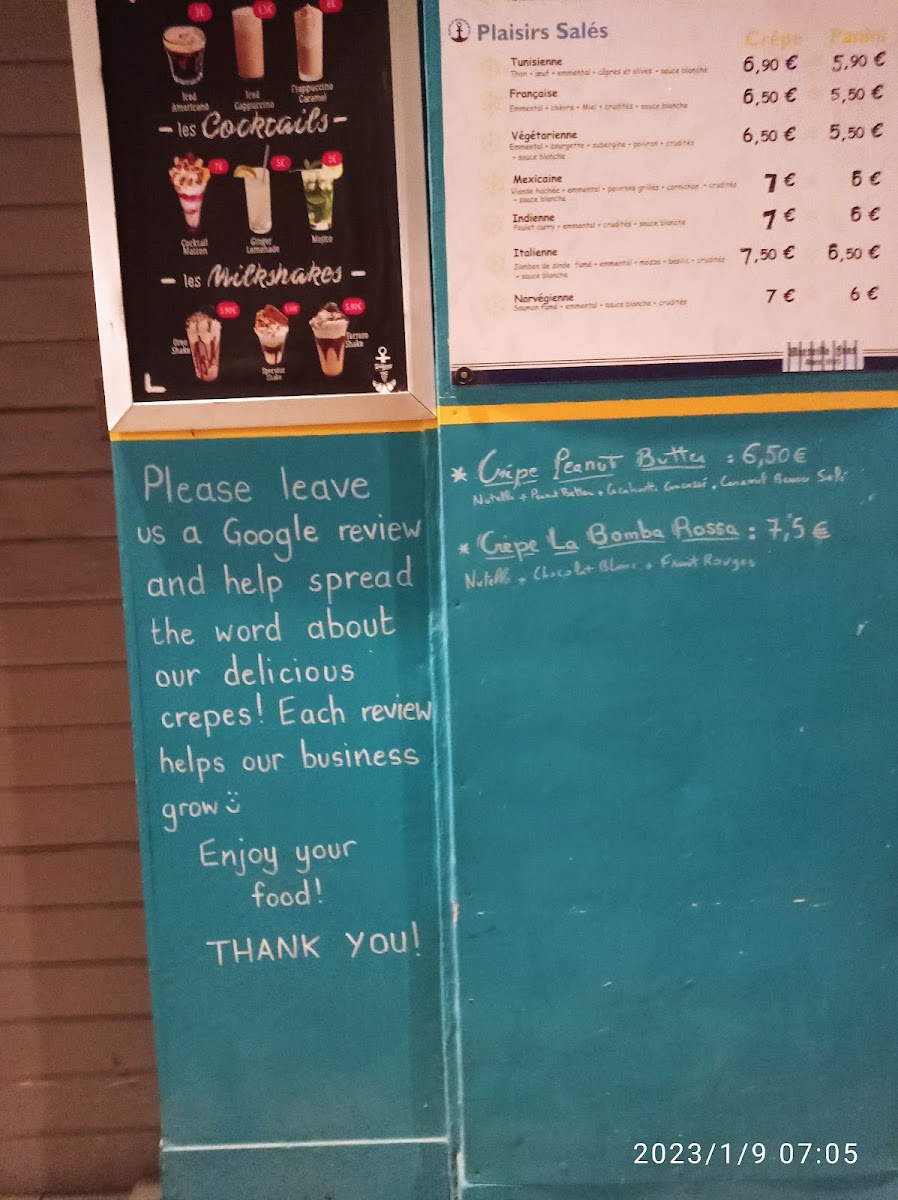 5€
6€
Iced
Americano
Iced
Cappuccino
Frappuccino
Caramel
les Cocktails
7€
5€
5€
Cocktail
Maison
Ginger
Lemonade
Mojito
les Milkshakes
5.90€
5.90€
5.90€
Oreo
Shake
Speculos
Shake
Ferrero
Shake
Plaisirs Salés
Crêpe Panini
Tunisienne 6,90 € 5,90 €
Thon • œuf • emmental • câpres et olives • sauce blanche
Française 6,50 € 5,50 €
Emmental • chèvre • Miel • crudités • sauce blanche
Végétarienne 6,50 € 5,50 €
Emmental • courgette • aubergine • poivron • crudités
• sauce blanche
Mexicaine 7 € 6 €
Viande hachée • emmental • poivrons grillés • cornichon • crudités
• sauce blanche
Indienne 7 € 6 €
Poulet curry • emmental • crudités • sauce blanche
Italienne 7,50 € 6,50 €
Jambon de dinde fumé • emmental • mozza • basilic • crudités
• sauce blanche
Norvégienne 7 € 6 €
Saumon fumé • emmental • sauce blanche • crudités
Please leave
us a Google review
and help spread
the word about
our delicious
crepes! Each review
helps our business
grow
Enjoy your
food!
THANK YOU!
* Crêpe Peanut Butter : 6,50 €
Nutella + Peanut Butter + Cacahuète Concassé, Caramel Beurre Salé
* Crêpe La Bomba Rossa : 7,5 €
Nutella + Chocolat Blanc + Fruit Rouges
2023/1/9 07:05